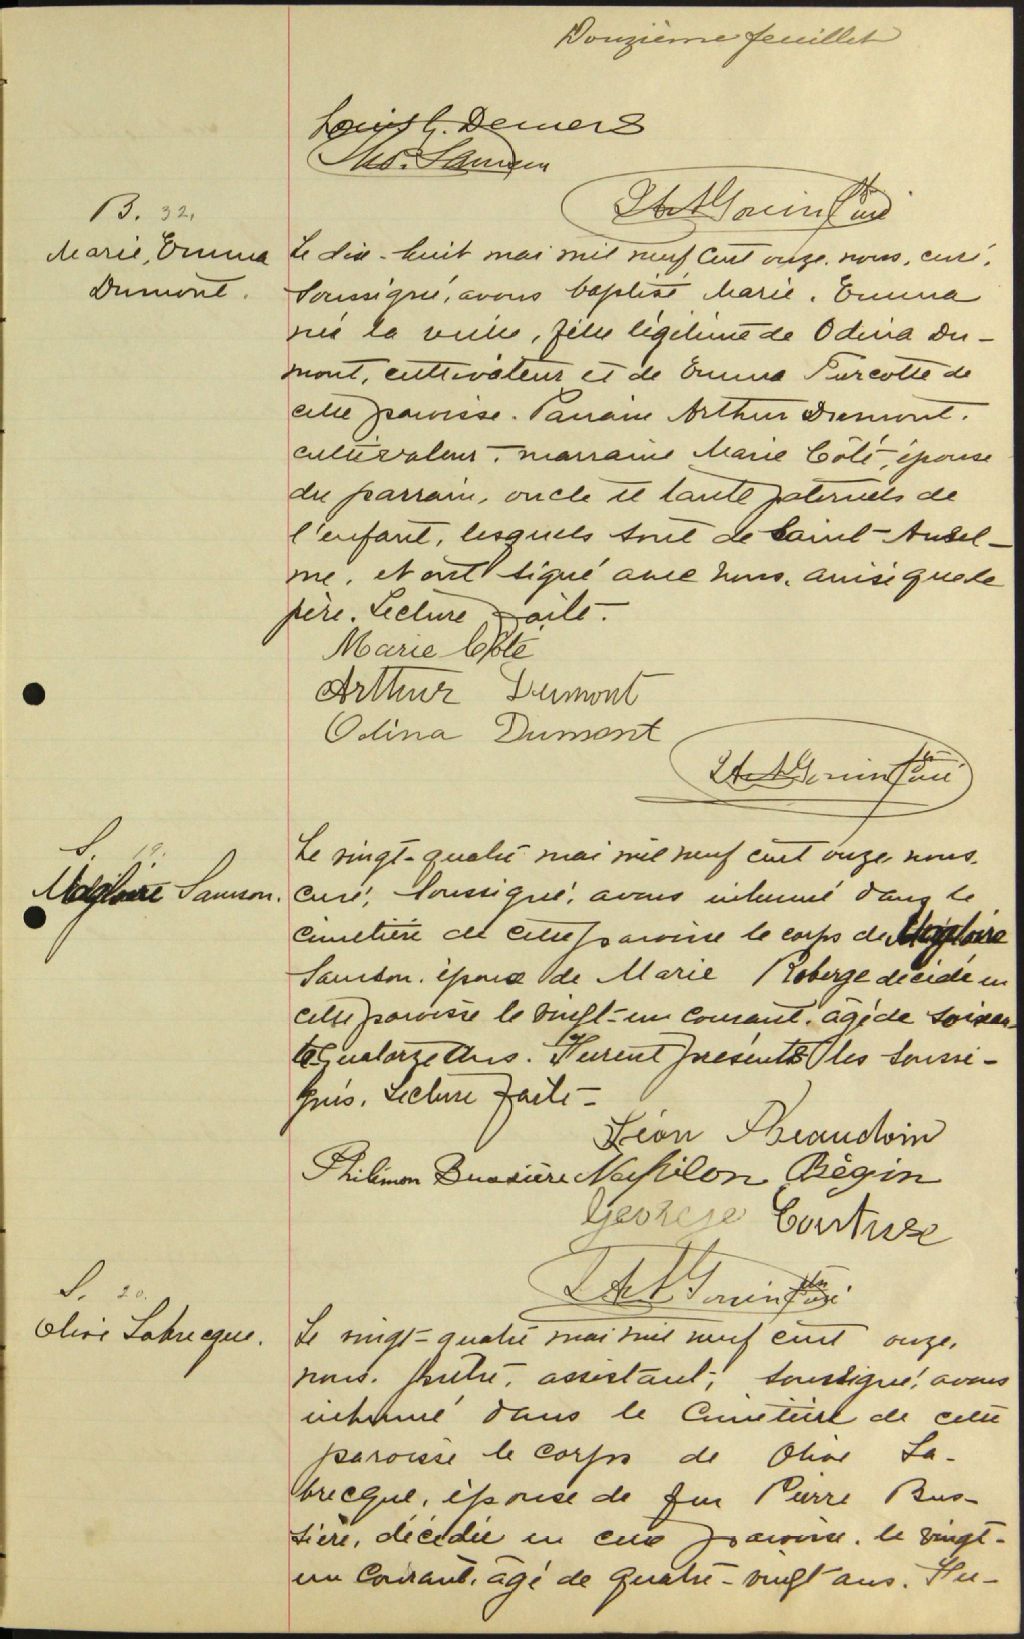 Douzième feuillet
Louis G. Demers
Ths. Samson
Gouin Ptre Curé
B. 32.
Marie, Emma
Dumont.
Le dix-huit mai mil neuf cent onze, nous, curé,
soussigné, avons baptisé Marie, Emma
née la veille, fille légitime de Odina Du-
mont, cultivateur et de Emma Turcotte de
cette paroisse. Parrain Arthur Dumont.
cultivateur, marraine Marie Côté, épouse
du parrain, oncle et tante paternels de
l'enfant, lesquels sont de Saint-Ansel-
me, et ont signé avec nous, ainsi que le
père. Lecture faite.
Marie Côté
Arthur Dumont
Odina Dumont
Gouin Ptre Curé
S. 19.
Magloire Samson.
Le vingt-quatre mai mil neuf cent onze, nous,
curé, soussigné, avons inhumé dans le
cimetière de cette paroisse le corps de Magloire
Samson, époux de Marie Roberge décédé en
cette paroisse le vingt-un courant, âgé de soixan-
te quatorze ans. Furent présents les soussi-
gnés. Lecture faite -
Léon Beaudoin
Philémon Bussière Napoléon Bégin
George Couture
Gouin Ptre Curé
S. 20.
Olive Labrecque.
Le vingt-quatre mai mil neuf cent onze,
nous, prêtre, assistant, soussigné, avons
inhumé dans le cimetière de cette
paroisse le corps de Olive La-
brecque, épouse de feu Pierre Bus-
sière, décédée en cette paroisse, le vingt-
un courant, âgé de quatre-vingt ans. Fu-